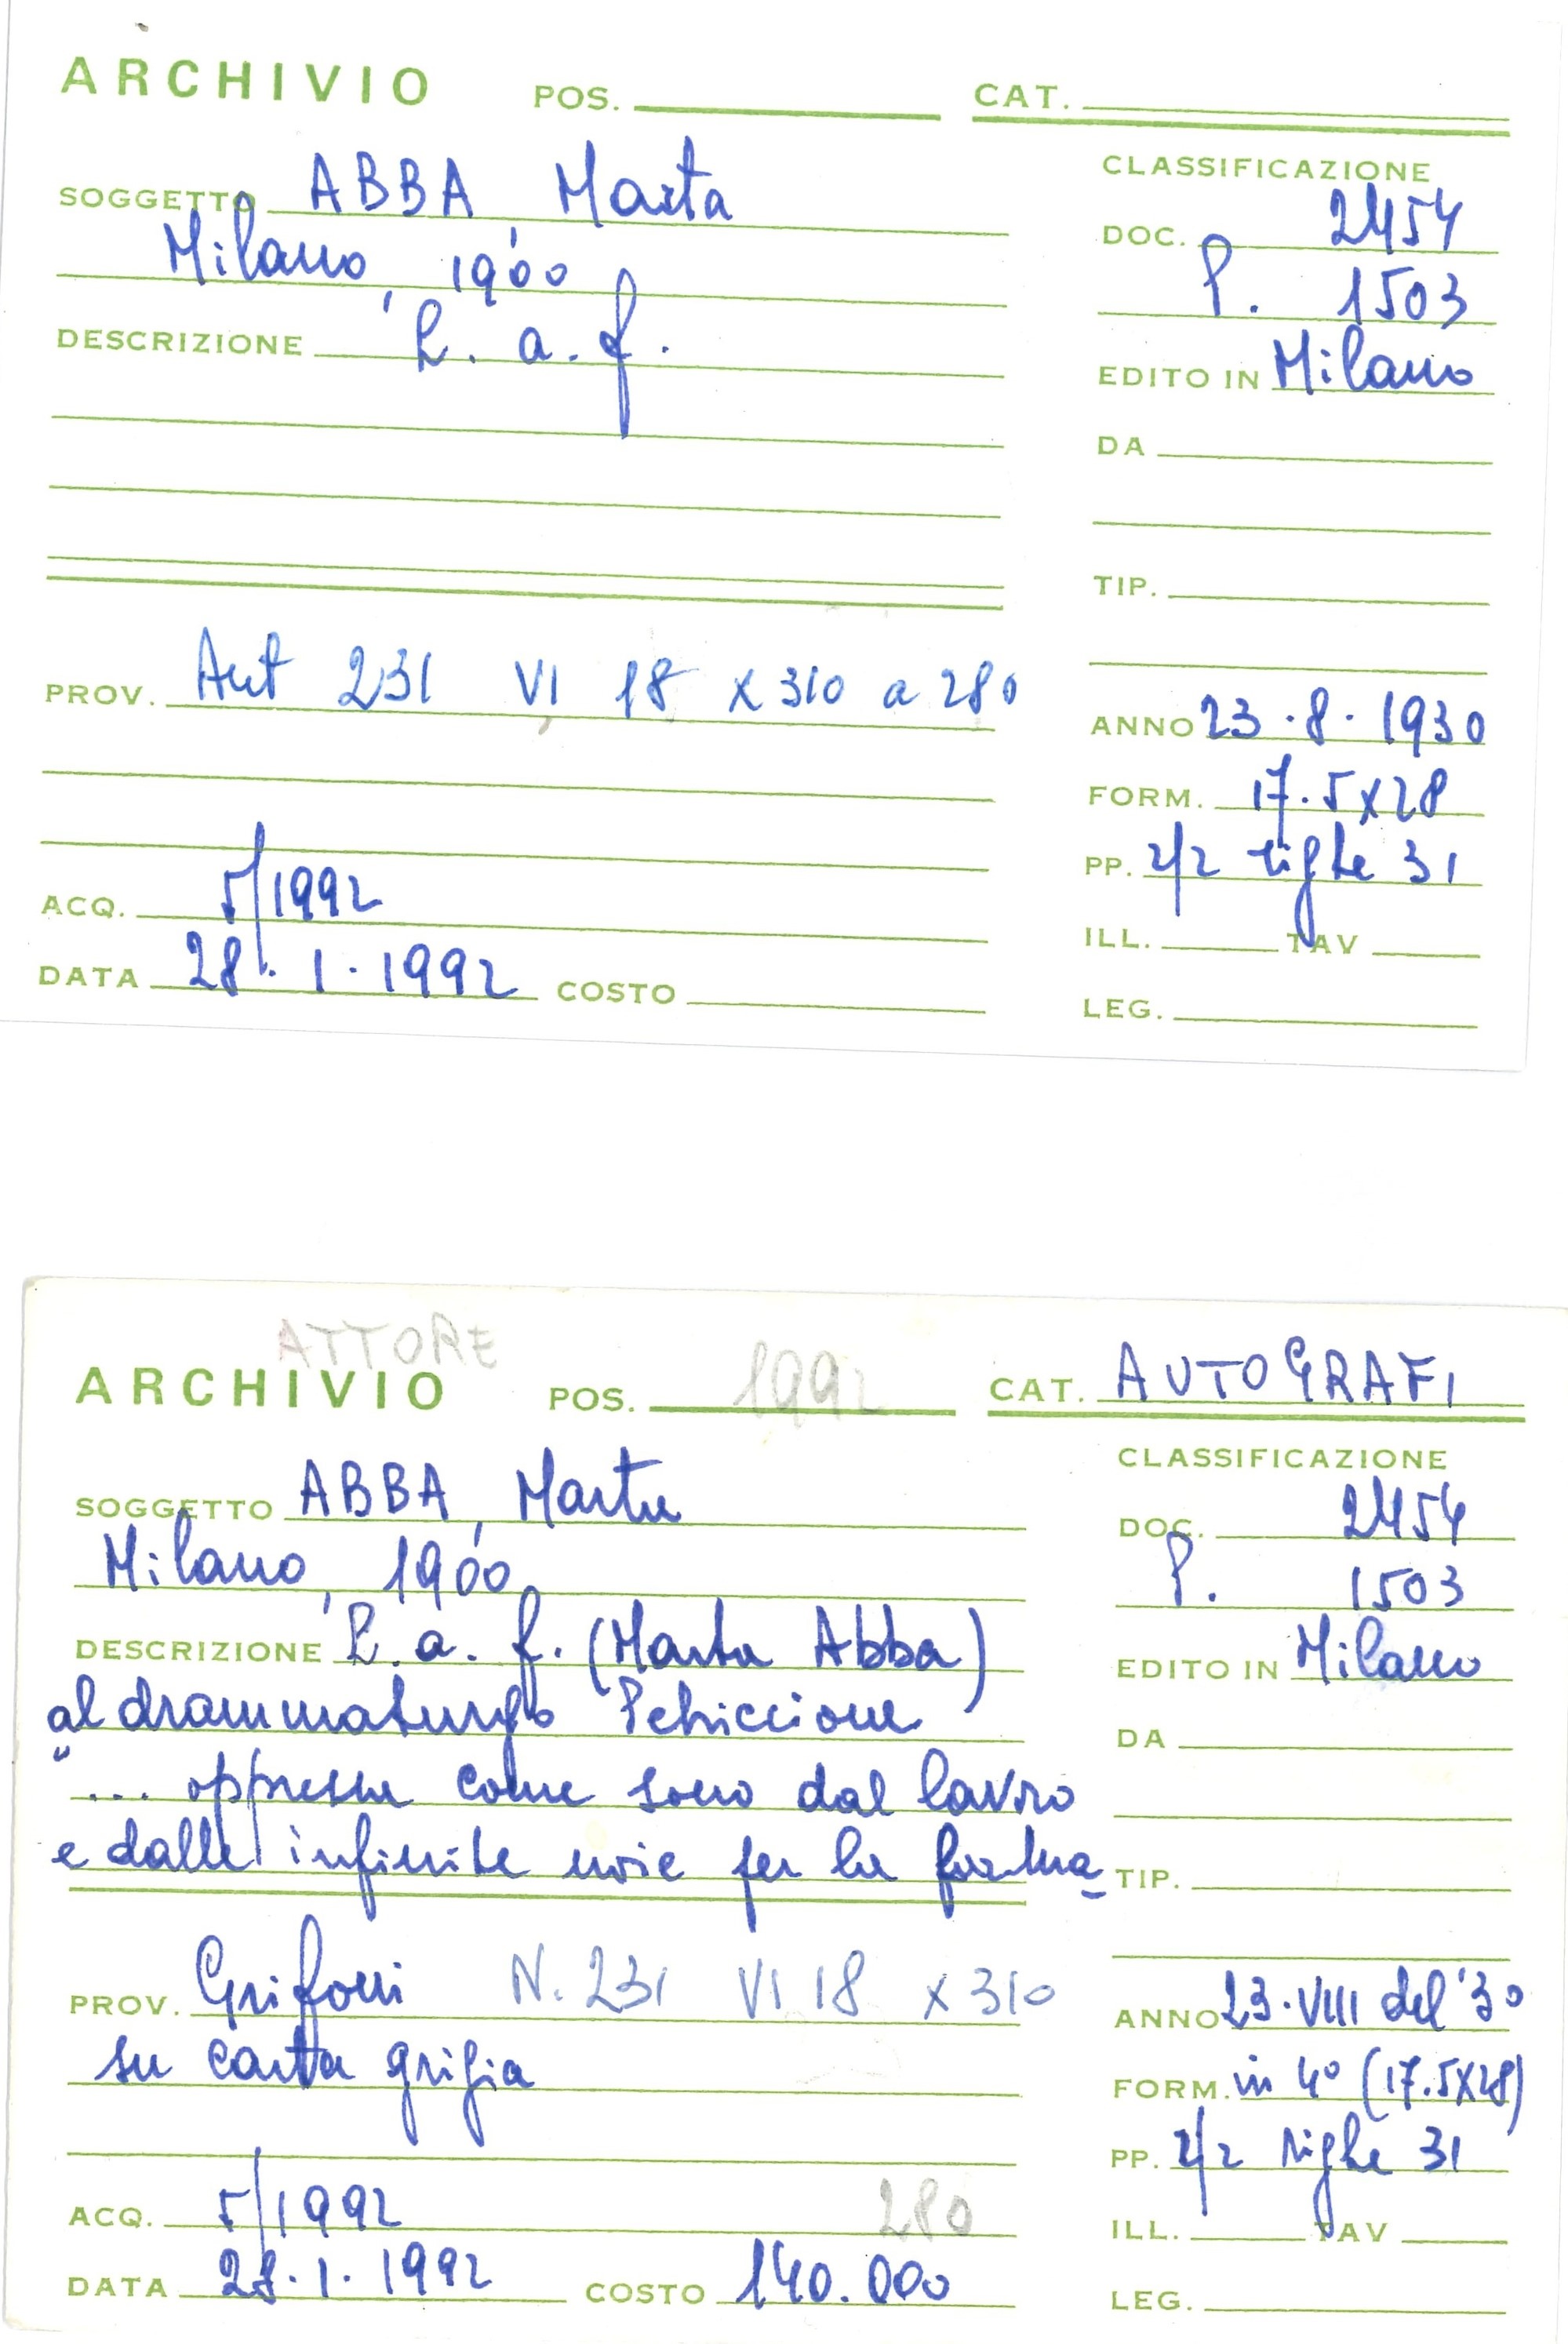 ARCHIVIO POS. CAT.
SOGGETTO ABBA Marta
Milano, 1900
DESCRIZIONE L. a. f.
CLASSIFICAZIONE
DOC. 2454
P. 1503
EDITO IN Milano
DA
TIP.
PROV. Aut 231 VI 18 x 310 a 280
ANNO 23.8.1930
FORM. 17.5x28
PP. 2/2 righe 31
ACQ. 5/1992
ILL. TAV
DATA 28.1.1992 COSTO
LEG.
ATTORE
ARCHIVIO POS. 1992 CAT. AUTOGRAFI
SOGGETTO ABBA, Marta
Milano, 1900
DESCRIZIONE L. a. f. (Marta Abba)
al drammaturgo Petriccione
"... oppressa come sono dal lavoro
e dalle infinite noie per la forma
CLASSIFICAZIONE
DOC. 2454
P. 1503
EDITO IN Milano
DA
TIP.
PROV. Grifoni N. 231 VI 18 x 310
su carta grigia
ANNO 23.VIII del '30
FORM. in 4° (17.5X28)
PP. 2/2 righe 31
ACQ. 5/1992 280
ILL. TAV
DATA 28.1.1992 COSTO 140.000
LEG.